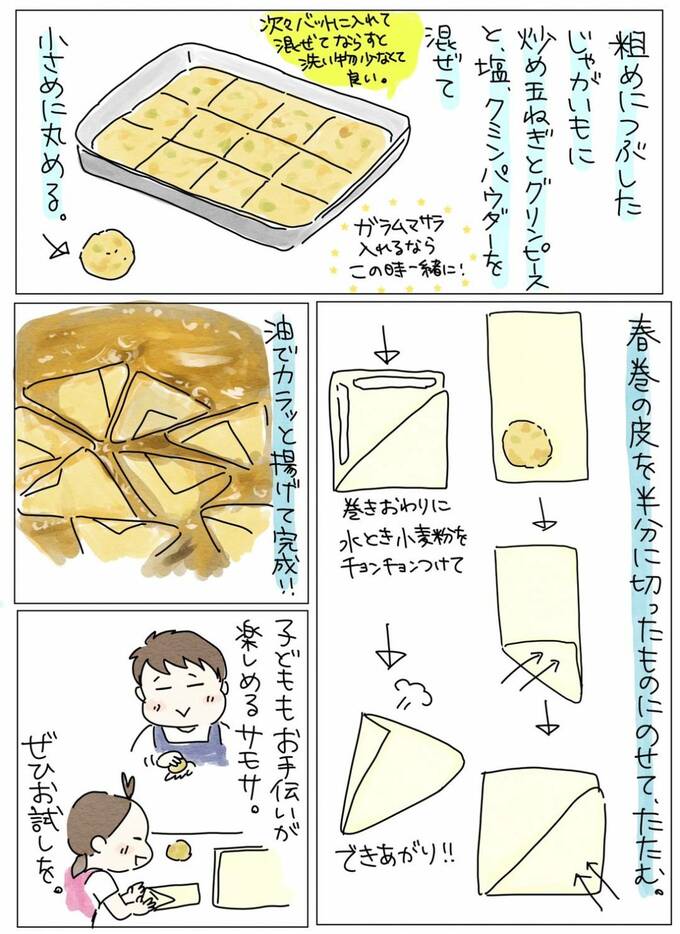 粗めにつぶした
じゃがいもに
炒め玉ねぎとグリンピース
と、塩、クミンパウダーを
混ぜて
次々バットに入れて
混ぜてならすと
洗い物少なくて
良い。
ガラムマサラ
入れるなら
この時一緒に！
小さめに丸める。
春巻の皮を半分に切ったものにのせて、たたむ。
巻きおわりに
水とき小麦粉を
チョンチョンつけて
できあがり!!
油でカラッと揚げて完成!!
子どももお手伝いが
楽しめるサモサ。
ぜひお試しを。